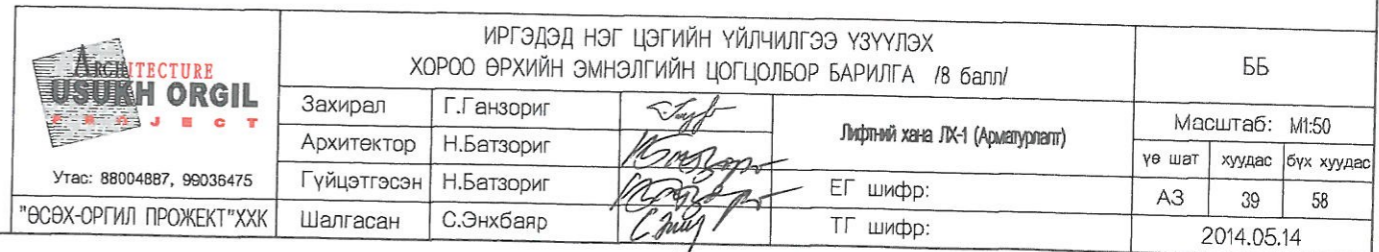 ARCHITECTURE
USUKH ORGIL
PROJECT
Утас: 88004887, 99036475
"ӨСӨХ-ОРГИЛ ПРОЖЕКТ"ХХК
ИРГЭДЭД НЭГ ЦЭГИЙН ҮЙЛЧИЛГЭЭ ҮЗҮҮЛЭХ
ХОРОО ӨРХИЙН ЭМНЭЛГИЙН ЦОГЦОЛБОР БАРИЛГА /8 балл/
Захирал Г.Ганзориг
Архитектор Н.Батзориг
Гүйцэтгэсэн Н.Батзориг
Шалгасан С.Энхбаяр
Лифтний хана ЛХ-1 (Арматурлалт)
ЕГ шифр:
ТГ шифр:
ББ
Масштаб: М1:50
үе шат хуудас бүх хуудас
А3 39 58
2014.05.14